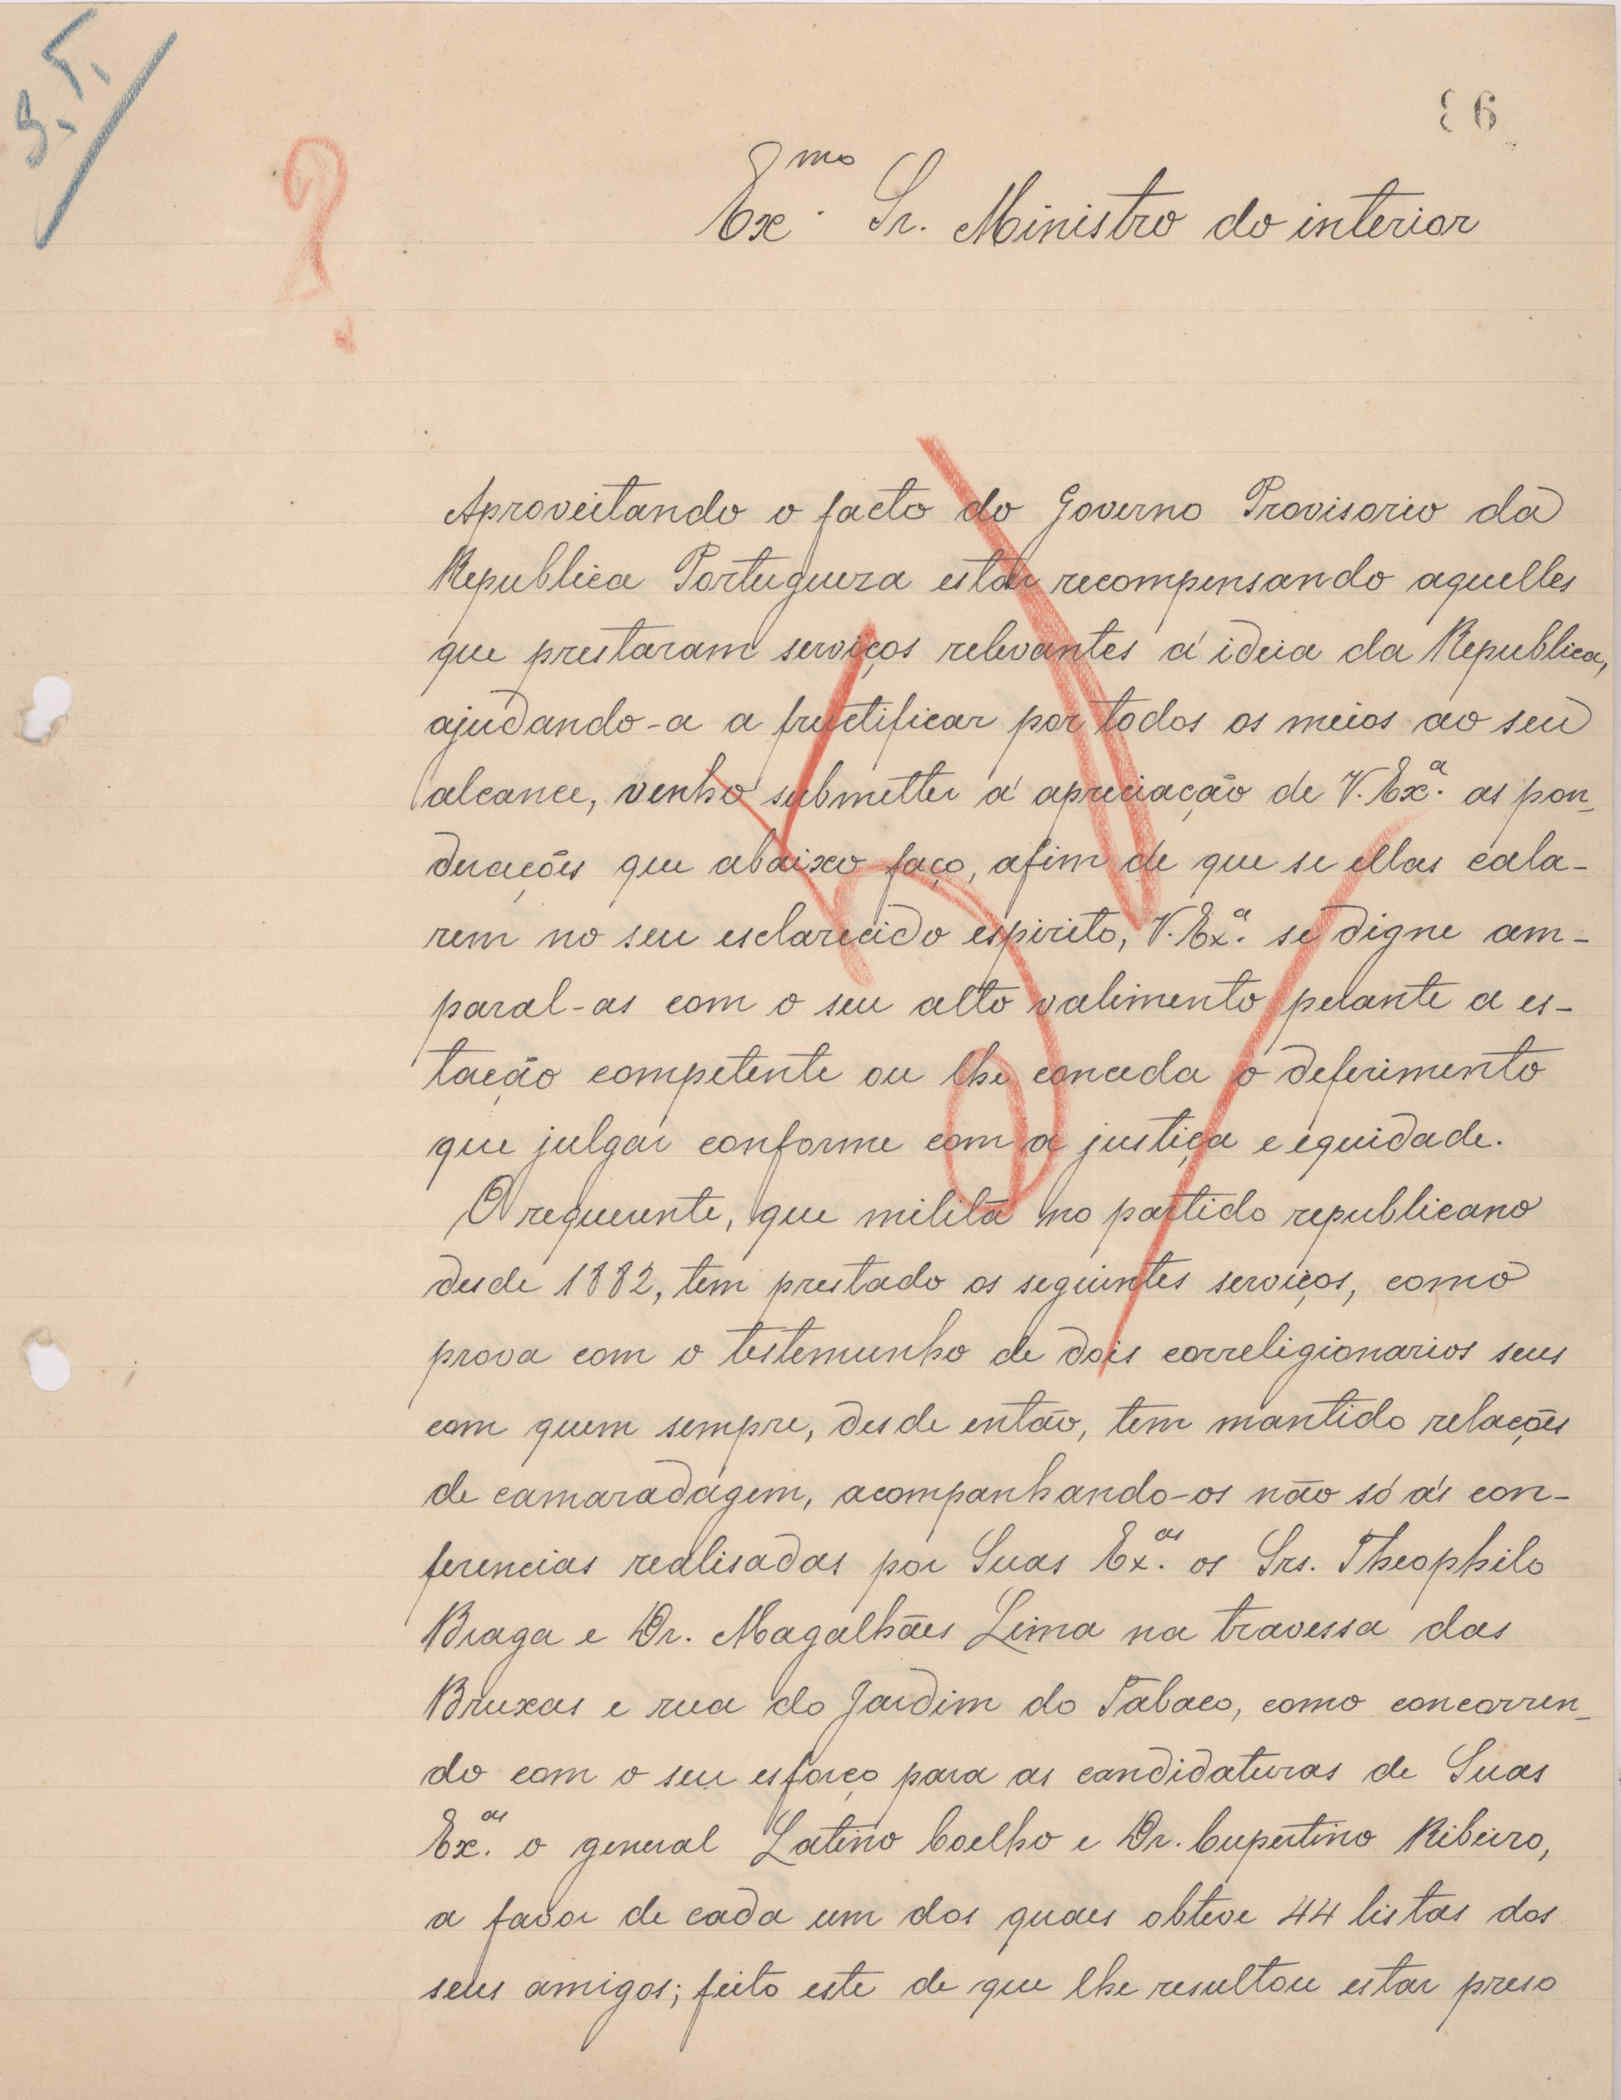 S. T.
93
Ex.mo Sr. Ministro do interior
Aproveitando o facto do Governo Provisorio da
Republica Portugueza estar recompensando aquelles
que prestaram serviços relevantes á ideia da Republica,
ajudando-a a fructificar por todos os meios ao seu
alcance, venho submetter á apreciação de V. Ex.ª as pon-
derações que abaixo faço, afim de que se ellas cala-
rem no seu esclarecido espirito, V. Ex.ª se digne am-
paral-as com o seu alto valimento perante a es-
tação competente ou lhe conceda o deferimento
que julgar conforme com a justiça e equidade.
O requerente, que milita no partido republicano
desde 1882, tem prestado os seguintes serviços, como
prova com o testemunho de dois correligionarios seus
com quem sempre, desde então, tem mantido relações
de camaradagem, acompanhando-os não só ás con-
ferencias realisadas por Suas Ex.as os Srs. Theophilo
Braga e Dr. Magalhães Lima na travessa das
Bruxas e rua do Jardim do Tabaco, como concorren-
do com o seu esforço para as candidaturas de Suas
Ex.as o general Latino Coelho e Dr. Cupertino Ribeiro,
a favor de cada um dos quaes obteve 44 listas dos
seus amigos; feito este de que lhe resultou estar preso